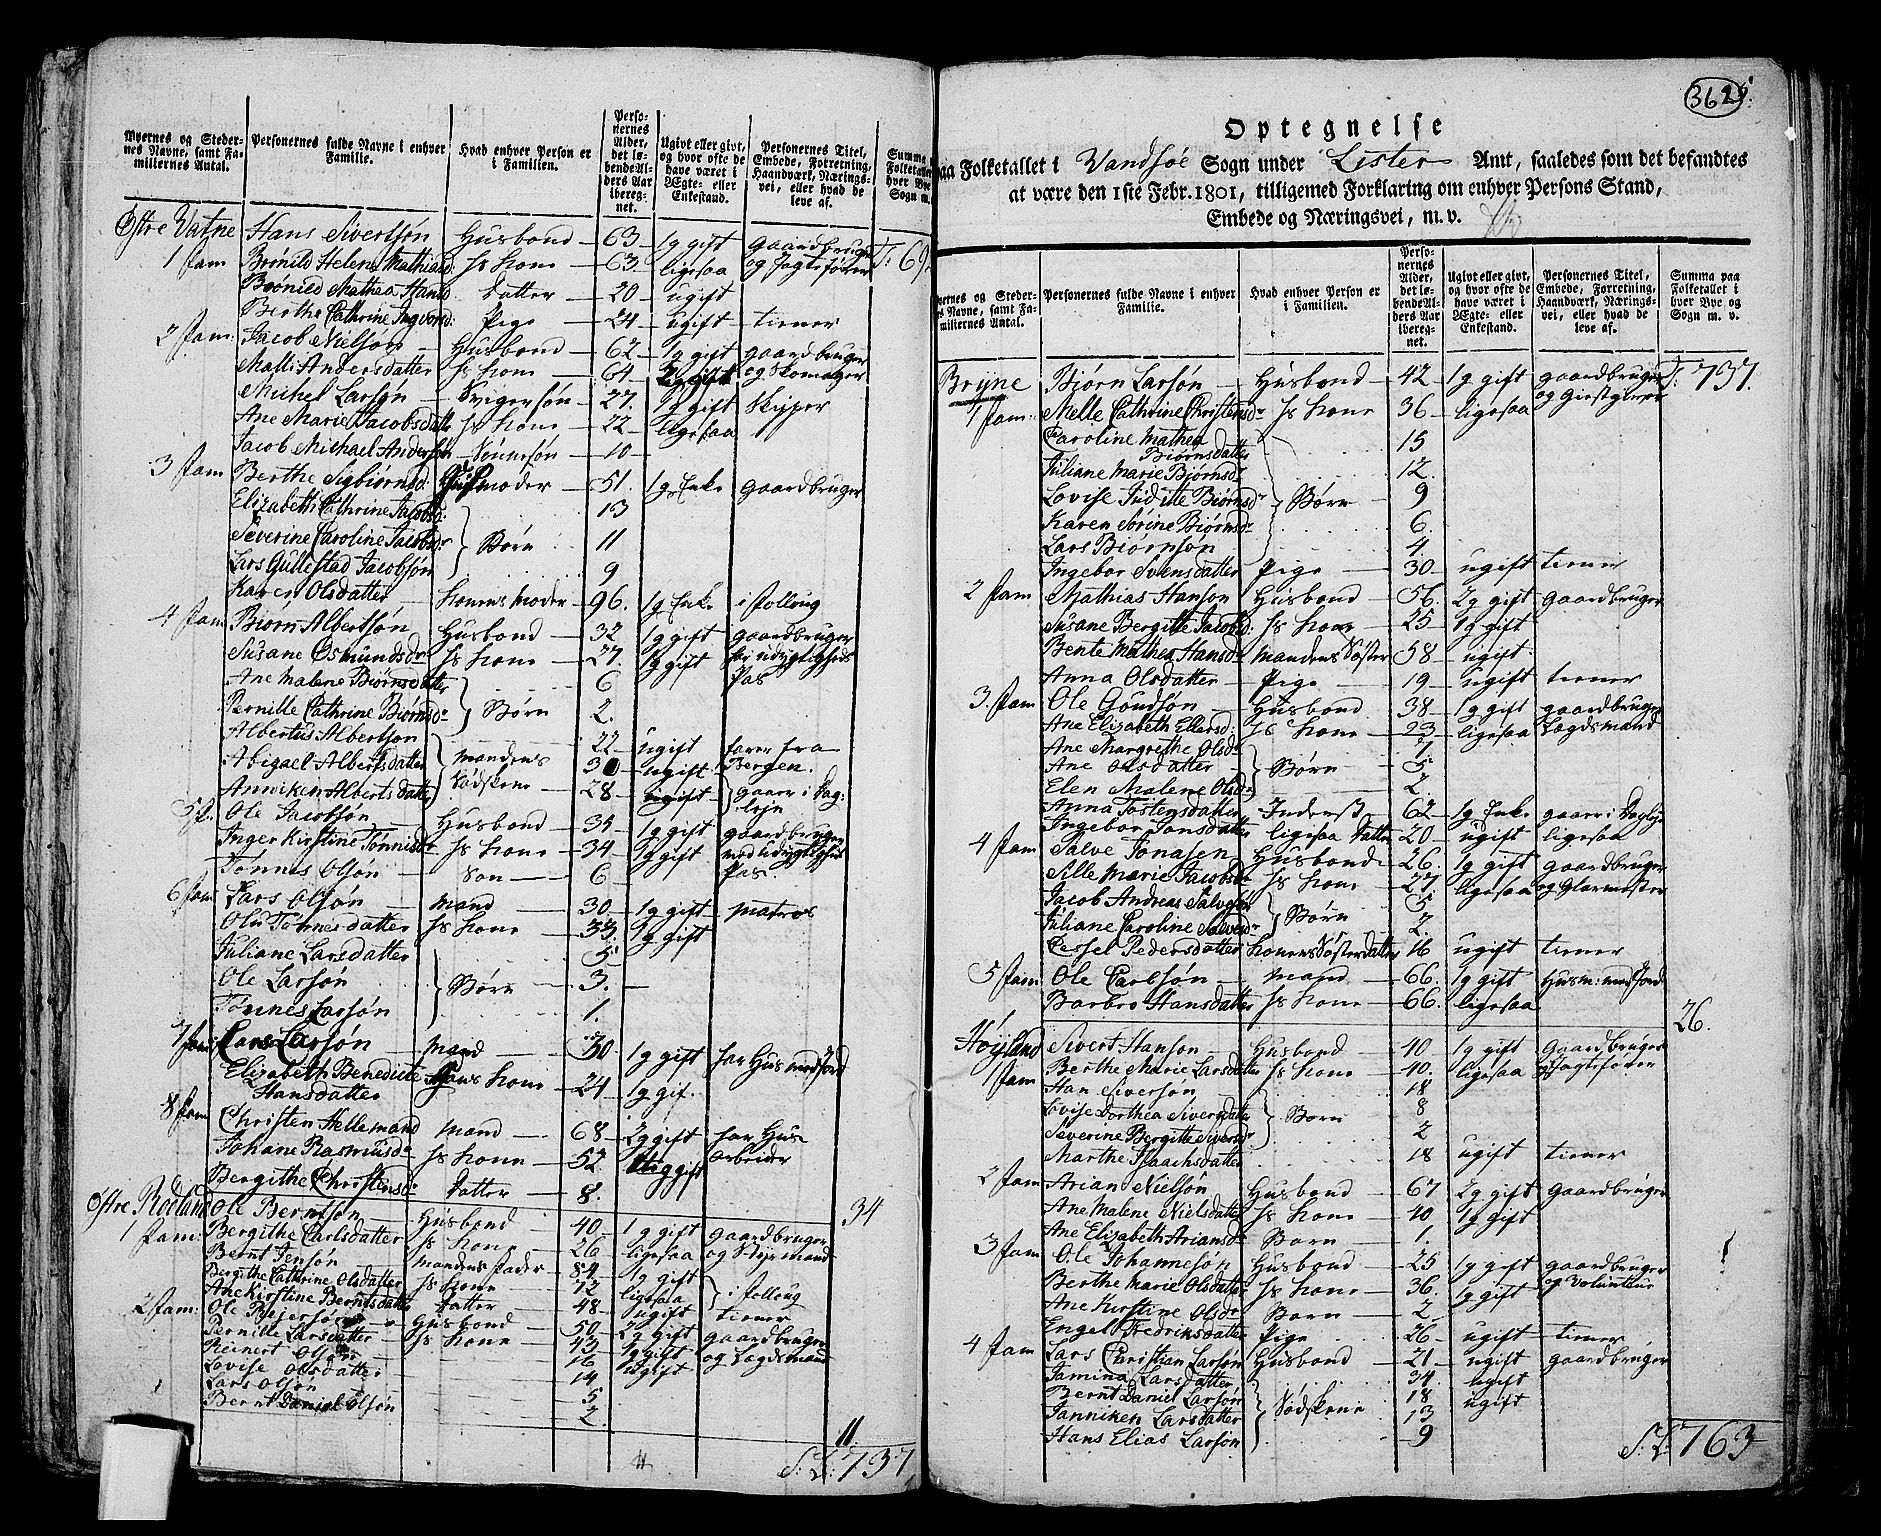 Byernes og Steder-
nes Navne, samt Fa-
miliernes Antal.
Personernes fulde Navne i enhver
Familie.
Hvad enhver Person er
i Familien.
Perso-
nernes
Alder,
det lø-
bende Al-
ders Aar
ibereg-
net.
Ugivt eller givt,
og hvor ofte de
have været i
Ægte- eller
Enkestand.
Personernes Titel,
Embede, Forretning,
Haandværk, Nærings-
vei, eller hvad de
leve af.
Summa
Folketallet
hver Bye
Sogn m.
Østre Vatne Hans Sivertsøn Husbond 63 1g gift gaardbruger
1 fam Børnild Helene Mathiasd: hs kone 63 ligesaa og
Børnild Mathea Hansd Datter 20 ugift
Berthe Cathrine Ingvorsd: Pige 24 ugift tiener
2 fam: Jacob Nielsøn Husbond 62 1g gift gaardbruger
Malli Andersdatter hs kone 64 og Skomager
Michel Larsøn Svigersøn 27. 1g gift Skipper
Ane Marie Jacobsdatter hs kone 22 ligesaa
Jacob Michael Andersøn Sønnesøn 10
3 fam Berthe Sigbiørnsd: Husmoder 51. 1g Enke gaardbruger
Elizabeth Cathrine Jacobsd: 13
Severine Caroline Jacobsd Børn 11
Lars Gullestad Jacobsøn 9
Karen Olsdatter konens moder 96. 1g Enke
4 fam Biørn Albertsøn Husbond 32 1g gift gaardbruger
Susane Osmundsdr hs kone 27. 1g gift
Ane Malene Biørnsdatter 6 Pas
Pernille Cathrine Biørnsdr Børn 2.
Albertus Albertsøn 22 ugift farer fra
Abigael Albertsdatter mandens 30 ugift Bergen.
Anniken Albertsdatter Sødskene 28 ugift gaar i Dag-
lejn
5 f. Ole Jacobsøn Husbond 35 1g gift gaardbruger
Inger Kirstine Tønnisdr hs kone 34 1g gift
Tønnes Olsøn Søn 6 Pas
6 fam Lars Olsøn mand 30 1g gift matros
Olu Tønnesdatter hs kone 33. 1g gift
Juliane Larsdatter 5
Ole Larsøn Børn 3.
Tønnes Larsøn 1.
7 fam: Lars Larsøn mand 50 1g gift har Hus med Jord
Elizabeth Benedicte Hans kone 24 1g gif.
Hansdatter
8 fam Christen Hellemand mand 68 2g gift har Hus
Johane Rasmusdr hs kone 52. Arbeider
Bergithe Christensd Datter 8.
34
Østre Rødland Ole Berntsøn Husbond 40 1g gift gaardbruger
1 fam: Bergithe Carlsdatter hs kone 26 ligesaa og Styrmand
Bernt Jensøn mandens fader 84 1g gift
Bergithe Cathrine Olsdatter hs kone 72 ligesaa
Ane Kirstine Berntsdatter Datter 48 ugift tiener
2 fam: Ole Husbond 50 2g gift gaardbruger
Pernille Larsdatter hs kone 43 1g gift og Lagdsmand
Reinert Olsøn 16 ugift
Lovise Olsdatter 14
Lars Olsøn 5
Bernt Daniel Olsøn 2.
11.
S: L: 737
362
Optegnelse
paa Folketallet i Vandsøe Sogn under Lister Amt, saaledes som det befandtes
at være den 1ste Febr. 1801, tilligemed Forklaring om enhver Persons Stand,
Embede og Næringsvei, m. v.
Byernes og Steder-
nes Navne, samt Fa-
miliernes Antal.
Personernes fulde Navne i enhver
Familie.
Hvad enhver Person er
i Familien.
Perso-
nernes
Alder,
det lø-
bende Al-
ders Aar
ibereg-
net.
Ugivt eller givt,
og hvor ofte de
have været i
Ægte- eller
Enkestand.
Personernes Titel,
Embede, Forretning,
Haandværk, Nærings-
vei, eller hvad de
leve af.
Summa paa
Folketallet i
hver Bye og
Sogn m. v.
Bryne Biørn Larsøn Husbond 42 1g gift gaardbruger T: 737.
1 fam: Melle Cathrine Christensdr hs kone 36 ligesaa og Giestgiver
Caroline Mathea
Biørnsdatter 15
Juliane Marie Biørnsd 12.
Lovise Juditte Biørnsdr Børn 9
Karen Sørine Biørnsdr 6.
Lars Biørnsøn 4.
Ingebor Svensdatter Pige 30 ugift tiener
2 fam Mathias Hanson Husbond 56. 2g gift gaardbruger
Susane Bergitte Jacobsd: hs kone 25 1g gift
Bente Mathea Hansdr mandens Søster 58 ugift
Anna Olsdatter Pige 19 ugift tiener
3. fam Ole Gundsøn Husbond 38 1g gift gaardbruger
Ane Elizabeth Ellersd: hs kone 23 ligesaa Lagdsmand
Ane Margrethe Olsdr 7
Ane Olsdatter Børn 5
Elen Malene Olsdr 2.
Anna Tostensdatter Inderst 62 1g Enke gaar i Daglejn
Ingebor Jonsdatter ligesaa Datter 20 ugift ligesaa
4 fam Salve Jonasen Husbond 26. 1g gift gaardbruger
Sille Marie Jacobsdr hs kone 27. ligesaa og Glarmester
Jacob Andreas Salvesøn 5
Juliane Caroline Salvesdr Børn 2.
Cersel Pedersdatter konens Søsterdatter 16 ugift tiener
5 fam Ole Carlsøn mand 66. 1g gift Husm: med Jord
Barbro Hansdatter hs kone 66. ligesaa
26.
Høyland Sivert Hanson Husbond 40 1g gift Gaardbruger
1 fam Berthe Marie Larsdatter hs kone 40. ligesaa
Han Siversøn 18
Lovise Dorthea Siversdatter Børn 8
Severine Bergitte Siversdr 2
Marthe Isaachsdatter 18 ugift tiener
2 fam Arian Nielsøn Husbond 67 2g gift gaardbruger
Ane Malene Nielsdatter hs kone 40 1g gift
Ane Elizabeth Ariansdr Barn 1.
3 fam Ole Johannesøn Husbond 25 1g gift gaardbruger
Berthe Marie Olsdatter hs kone 36. 1g gift og Volunteur
Ane Kirstine Olsdr Barn 2
Engel Fredriksdatter Pige 26 ugift tiener
4 fam Lars Christian Larsøn Husbond 21 ugift gaardbruger
Jamina Larsdatter 34 ugift
Bernt Daniel Larsøn Sødskene 18 ugift
Janniken Larsdatter 13
Hans Elias Larsøn 9
S: L: 763